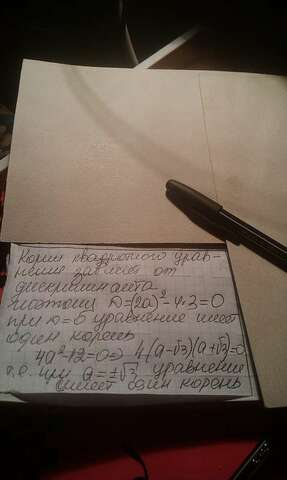 Корни квадратного урав-
нения зависят от
дискриминанта
поэтому D=(2a)²-4·3=0
при D=0 уравнение имеет
один корень
4a²-12=0⇒ 4(a-√3)(a+√3)=0
т.е. при a=±√3 уравнение
имеет один корень